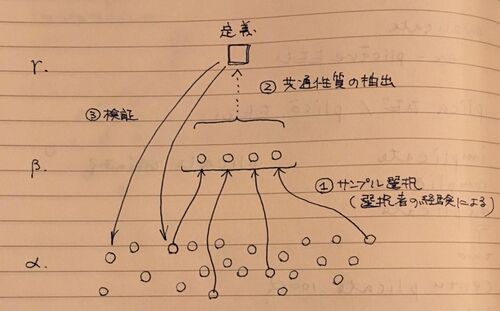 定義
γ.
② 共通性質の抽出
③ 検証
β.
① サンプル選択
(選択者の経験による)
α.